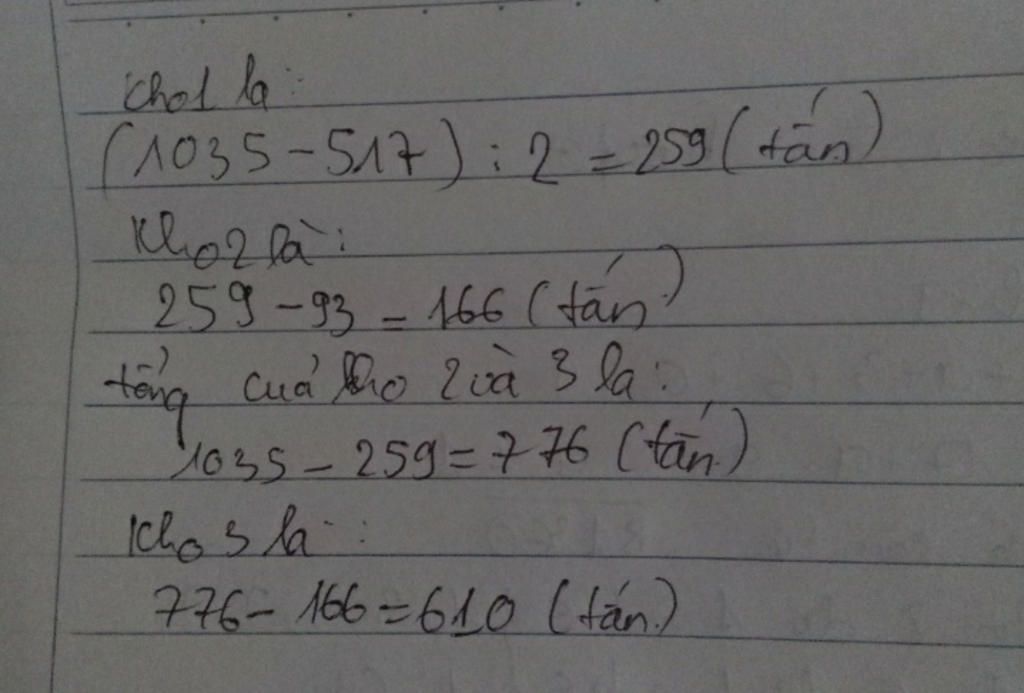 Kho1 là:
(1035-517):2=259(tấn)
Kho2 là:
259-93=166(tấn)
tổng cuả kho 2 và 3 la:
1035-259=776(tấn)
Kho 3 là:
776-166=610(tấn)